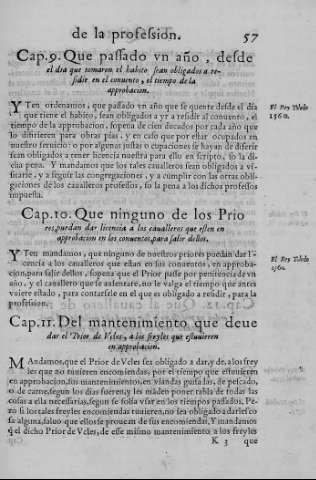 de la profession. 57
Cap.9. Que passado vn año, desde
el dia que tomaren el habito sean obligados a re-
sidir en el conuento, el tiempo de la
aprobacion.
YTen ordenamos, que passado vn año que se quente desde el dia
que tiene el habito, sean obligados a yr a residir al conuento, el
tiempo de la aprobacion, sopena de cien ducados por cada año que
lo difirieren para obras pias, y en caso que por estar ocupados en
nuestro seruicio: o por algunas justas ocupaciones se hayan de diferir
sean obligados a tener licencia nuestra para ello en scripto, so la di-
cha pena. Y mandamos que los tales caualleros sean obligados a vi-
sitarse, y a seguir las congregaciones, y a cumplir con las otras obli-
gaciones de los caualleros professos, so la pena a los dichos professos
impuesta.
El Rey Toledo
1560.
Cap.10. Que ninguno de los Prio
res, puedan dar licencia a los caualleros que esten en
aprobacion en los conuentos, para salir dellos.
YTen mandamos, que ninguno de nuestros priores puedan dar li-
cencia a los caualleros que estan en sus conuentos, en aprobac-
ion, para salir dellos, sopena que el Prior paste por penitencia de vn
año, y el cauallero que se ausentare, no le valga el tiempo que antes
vuiere estado, para contarsele en el que es obligado a residir, para la
profession.
El Rey Toledo
1560.
Cap.11. Del mantenimiento que deue
dar el Prior de Vcles, a los freyles que estuuieren
en aprobacion.
MAndamos, que el Prior de Vcles sea obligado a dar, y de, a los frey
les que no tuuieren encomiendas, por el tiempo que estuuieren
en aprobacion, sus mantenimientos, en viandas guisadas, de pescado,
o de carne, segun los dias fueren, y les mãden poner tabla de todas las
cosas a ella necessarias, segun se solia vsar en los tiempos passados. Pe-
ro si los tales freyles encomiendas tuuieren, no sea obligado a darles co
sa alguna, saluo que ellos se prouean de sus encomiendas, Y mandamos
q̃ el dicho Prior de Vcles, de esse mismo mantenimiento a los freyles
K 3 que